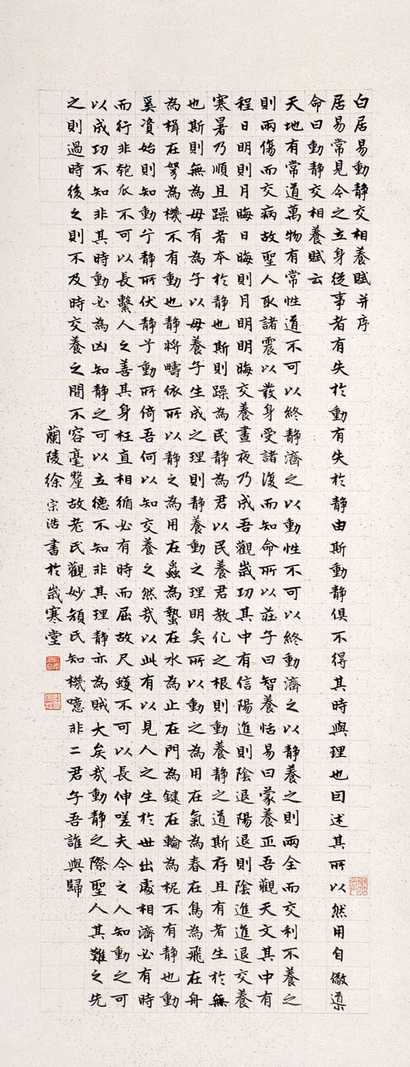 白居易動静交相養賦并序
居易常見今之立身從事者有失於動有失於静由斯動静俱不得其時與理也因述其所以然用自儆導
命曰動静交相養賦云
天地有常道萬物有常性道不可以終静濟之以動性不可以終動濟之以静養之則兩全而交利不養之
則兩傷而交病故聖人取諸震以發身受諸復而知命所以莊子曰智養恬易曰蒙養正吾觀天文其中有
程日明則月晦日晦則月明明晦交養晝夜乃成吾觀歲功其中有信陽進則陰退陽退則陰進進退交養
寒暑乃順且躁者本於静也斯則躁為民静為君以民養君教化之根則養静之道斯存且有者生於無
也斯則無為母有為子以母養子生成之理則養動之理明矣所以動之為用在氣為春在鳥為飛在舟
為楫在弩為機不有動也静將疇依所以静之為用在蟲為蟄在水為止在門為鍵在輪為柅不有静也動
奚資始則知動兮静所伏静兮動所倚吾何以知交養之然哉以此有以見人之生於世出處相濟必有時
而行非匏瓜不可以長繫人之善其身枉直相循必有時而屈故尺蠖不可以長伸嗟夫今之人知動之可
以成功不知非其時動必為凶知静之可以立德不知非其理静亦為賊大矣哉動静之際聖人其難之先
之則過時後之則不及時交養之間不容毫釐故老氏觀妙顏氏知機噫非二君子吾誰與歸
蘭陵徐宗浩書於歲寒堂